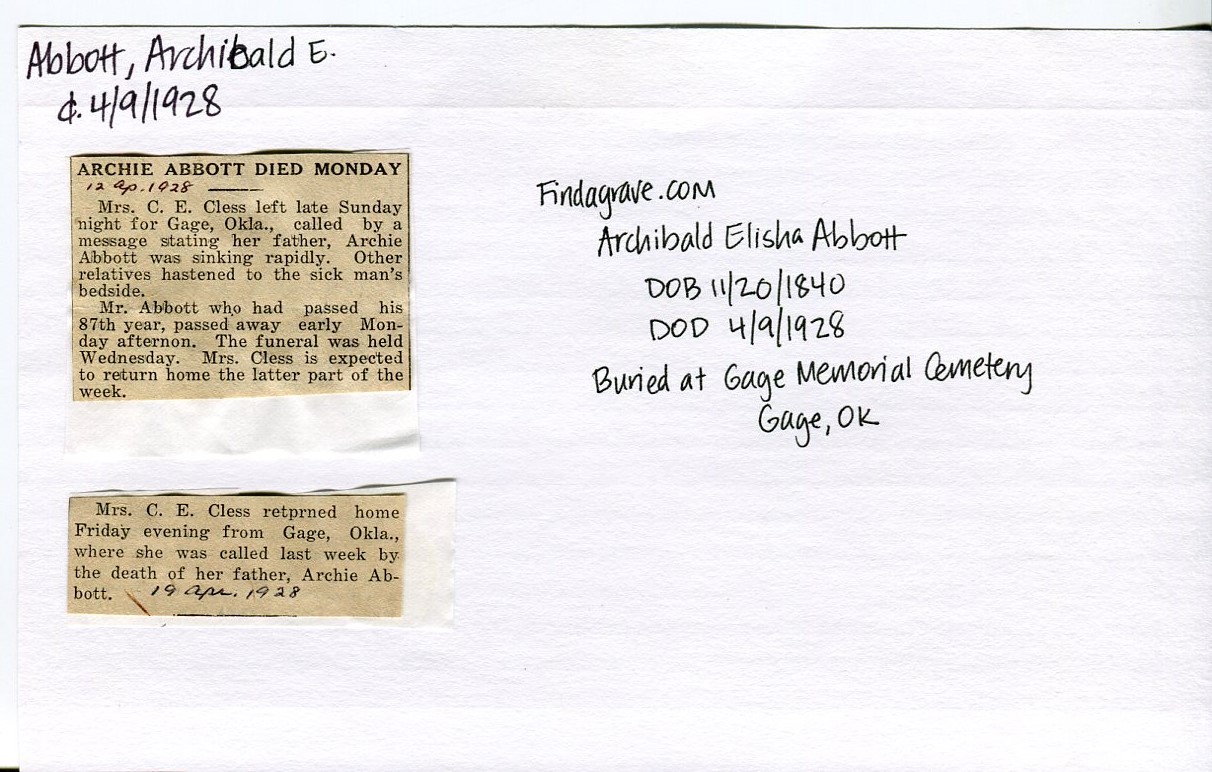 Abbott, Archibald E.
d. 4/9/1928
ARCHIE ABBOTT DIED MONDAY
12 Ap. 1928
Mrs. C. E. Cless left late Sunday
night for Gage, Okla., called by a
message stating her father, Archie
Abbott was sinking rapidly. Other
relatives hastened to the sick man's
bedside.
Mr. Abbott who had passed his
87th year, passed away early Mon-
day afternon. The funeral was held
Wednesday. Mrs. Cless is expected
to return home the latter part of the
week.
Mrs. C. E. Cless retprned home
Friday evening from Gage, Okla.,
where she was called last week by
the death of her father, Archie Ab-
bott. 19 Apr. 1928
Findagrave.com
Archibald Elisha Abbott
DOB 11/20/1840
DOD 4/9/1928
Buried at Gage Memorial Cemetery
Gage, OK